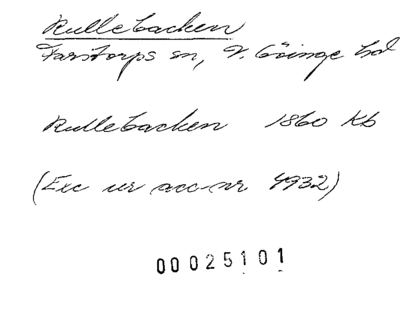 Rullebacken
Farstorps sn, V. Göinge hd
Rullebacken 1860 Kb
(Exc ur acc-nr 4932)
00025101